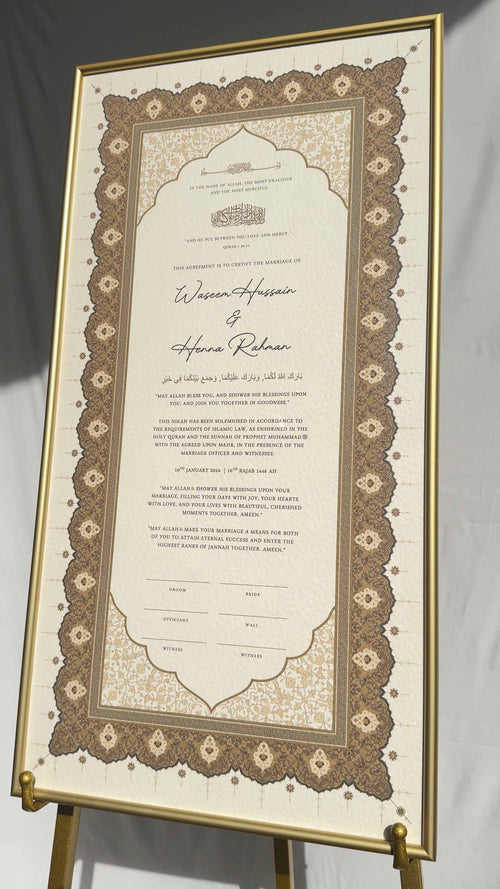 IN THE NAME OF ALLAH, THE MOST GRACIOUS
AND THE MOST MERCIFUL.
"AND HE PUT BETWEEN YOU LOVE AND MERCY."
QURAN | 30:21
THIS AGREEMENT IS TO CERTIFY THE MARRIAGE OF
Waseem Hussain
&
Henna Rahman
بَارَكَ اللهُ لَكُمَا، وَبَارَكَ عَلَيْكُمَا، وَجَمَعَ بَيْنَكُمَا فِي خَيْرٍ
"MAY ALLAH BLESS YOU, AND SHOWER HIS BLESSINGS UPON
YOU, AND JOIN YOU TOGETHER IN GOODNESS."
THIS NIKAH HAS BEEN SOLEMNISED IN ACCORDANCE TO
THE REQUIREMENTS OF ISLAMIC LAW, AS ENSHRINED IN THE
HOLY QURAN AND THE SUNNAH OF PROPHET MUHAMMAD ﷺ
WITH THE AGREED UPON MAHR, IN THE PRESENCE OF THE
MARRIAGE OFFICER AND WITNESSES.
19TH JANUARY 2024 | 10TH RAJAB 1446 AH
"MAY ALLAH SHOWER HIS BLESSINGS UPON YOUR
MARRIAGE, FILLING YOUR DAYS WITH JOY, YOUR HEARTS
WITH LOVE, AND YOUR LIVES WITH BEAUTIFUL, CHERISHED
MOMENTS TOGETHER. AMEEN."
"MAY ALLAH MAKE YOUR MARRIAGE A MEANS FOR BOTH
OF YOU TO ATTAIN ETERNAL SUCCESS AND ENTER THE
HIGHEST RANKS OF JANNAH TOGETHER. AMEEN."
GROOM BRIDE
OFFICIANT WALI
WITNESS WITNESS